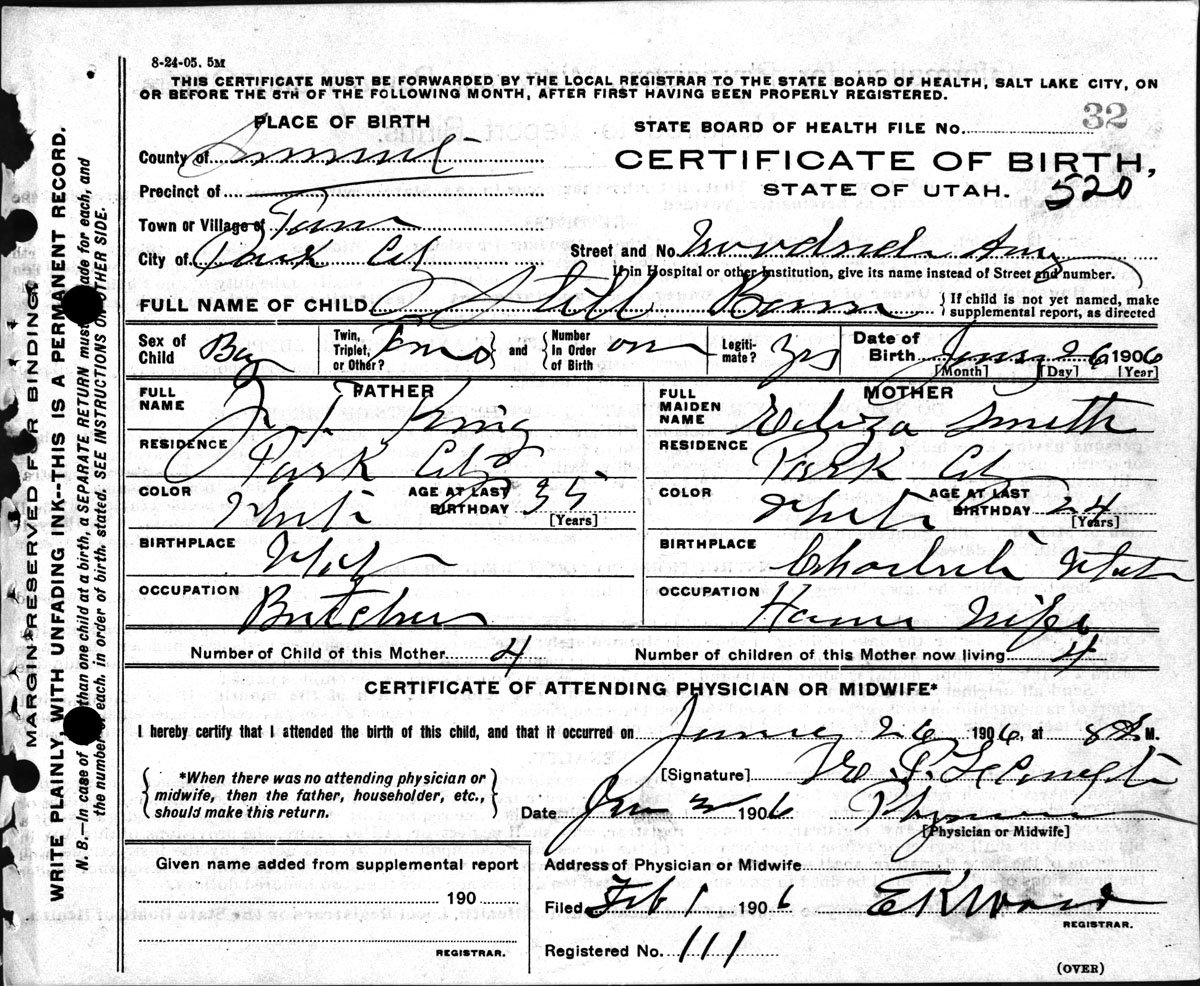 8-24-05. 5M
THIS CERTIFICATE MUST BE FORWARDED BY THE LOCAL REGISTRAR TO THE STATE BOARD OF HEALTH, SALT LAKE CITY, ON
OR BEFORE THE 5TH OF THE FOLLOWING MONTH, AFTER FIRST HAVING BEEN PROPERLY REGISTERED.
PLACE OF BIRTH
STATE BOARD OF HEALTH FILE No. 32
County of Summit
CERTIFICATE OF BIRTH,
Precinct of
STATE OF UTAH. 520
Town or Village of
City of Park City
Street and No.
If in Hospital or other Institution, give its name instead of Street and number.
FULL NAME OF CHILD Still Born
{ If child is not yet named, make
supplemental report, as directed
Sex of Child Boy
Twin, Triplet, or Other? and { Number In Order of Birth
Legitimate? yes
Date of Birth 26 1906
[Month] [Day] [Year]
FATHER
FULL NAME King
RESIDENCE Park City
COLOR White
AGE AT LAST BIRTHDAY 35
[Years]
BIRTHPLACE
OCCUPATION Butcher
MOTHER
FULL MAIDEN NAME Eliza Smith
RESIDENCE Park City
COLOR White
AGE AT LAST BIRTHDAY 24
[Years]
BIRTHPLACE Utah
OCCUPATION House Wife
Number of Child of this Mother 4
Number of children of this Mother now living 4
CERTIFICATE OF ATTENDING PHYSICIAN OR MIDWIFE*
I hereby certify that I attended the birth of this child, and that it occurred on 26 1906, at 8 M.
{ *When there was no attending physician or
midwife, then the father, householder, etc.,
should make this return. }
[Signature]
Date 1906
[Physician or Midwife]
Given name added from supplemental report
190
REGISTRAR.
Address of Physician or Midwife
Filed Feb 1 1906 E K Wood
REGISTRAR.
Registered No. 111
(OVER)
MARGIN RESERVED FOR BINDING.
WRITE PLAINLY, WITH UNFADING INK--THIS IS A PERMANENT RECORD.
N. B.—In case of than one child at a birth, a SEPARATE RETURN must made for each, and
the number each. in order of birth. stated. SEE INSTRUCTIONS ON OTHER SIDE.